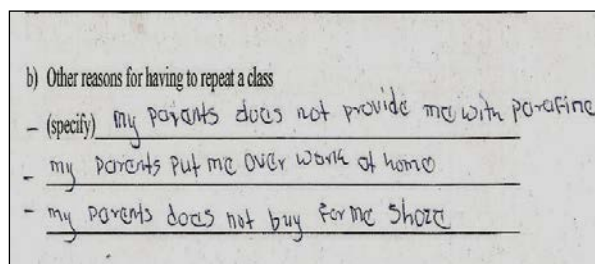 b) Other reasons for having to repeat a class
– (specify) my parents does not provide me with parafine
– my parents put me over work at home
– my parents does not buy for me shoze